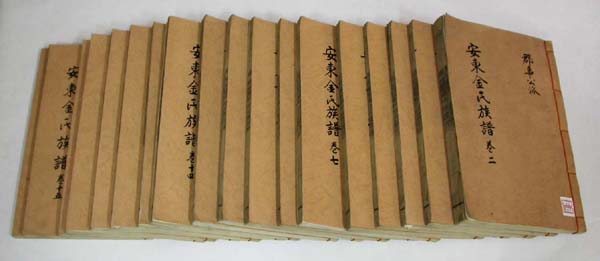 安東金氏族譜 卷十五
安東金氏族譜 卷十四
安東金氏族譜 卷七
安東金氏族譜 卷二
郡事公派